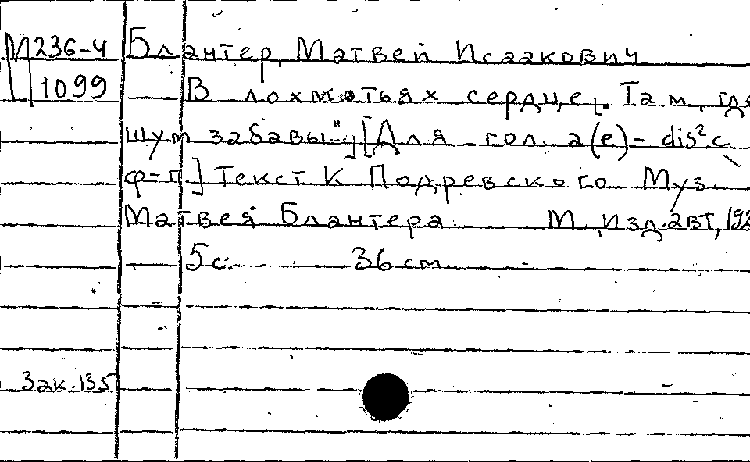 М236-4 Блантер, Матвей Исаакович
1099 В лохмотьях сердце. [„Там, где
шум забавы"] [Для гол. a(e)- dis² с
ф-п.] Текст К Подревского Муз.
Матвея Блантера М., изд. авт, 192
5с. 36 cm
Зак. 135